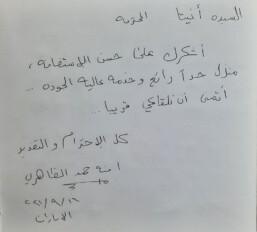 السيده أنيتا المحترمه
أشكرك على حسن الاستضافة،
منزل جداً رائع وخدمه عالية الجوده ..
أتمنى أن نلتقي قريباً ...
كل الاحترام والتقدير
القاهري
الامارات